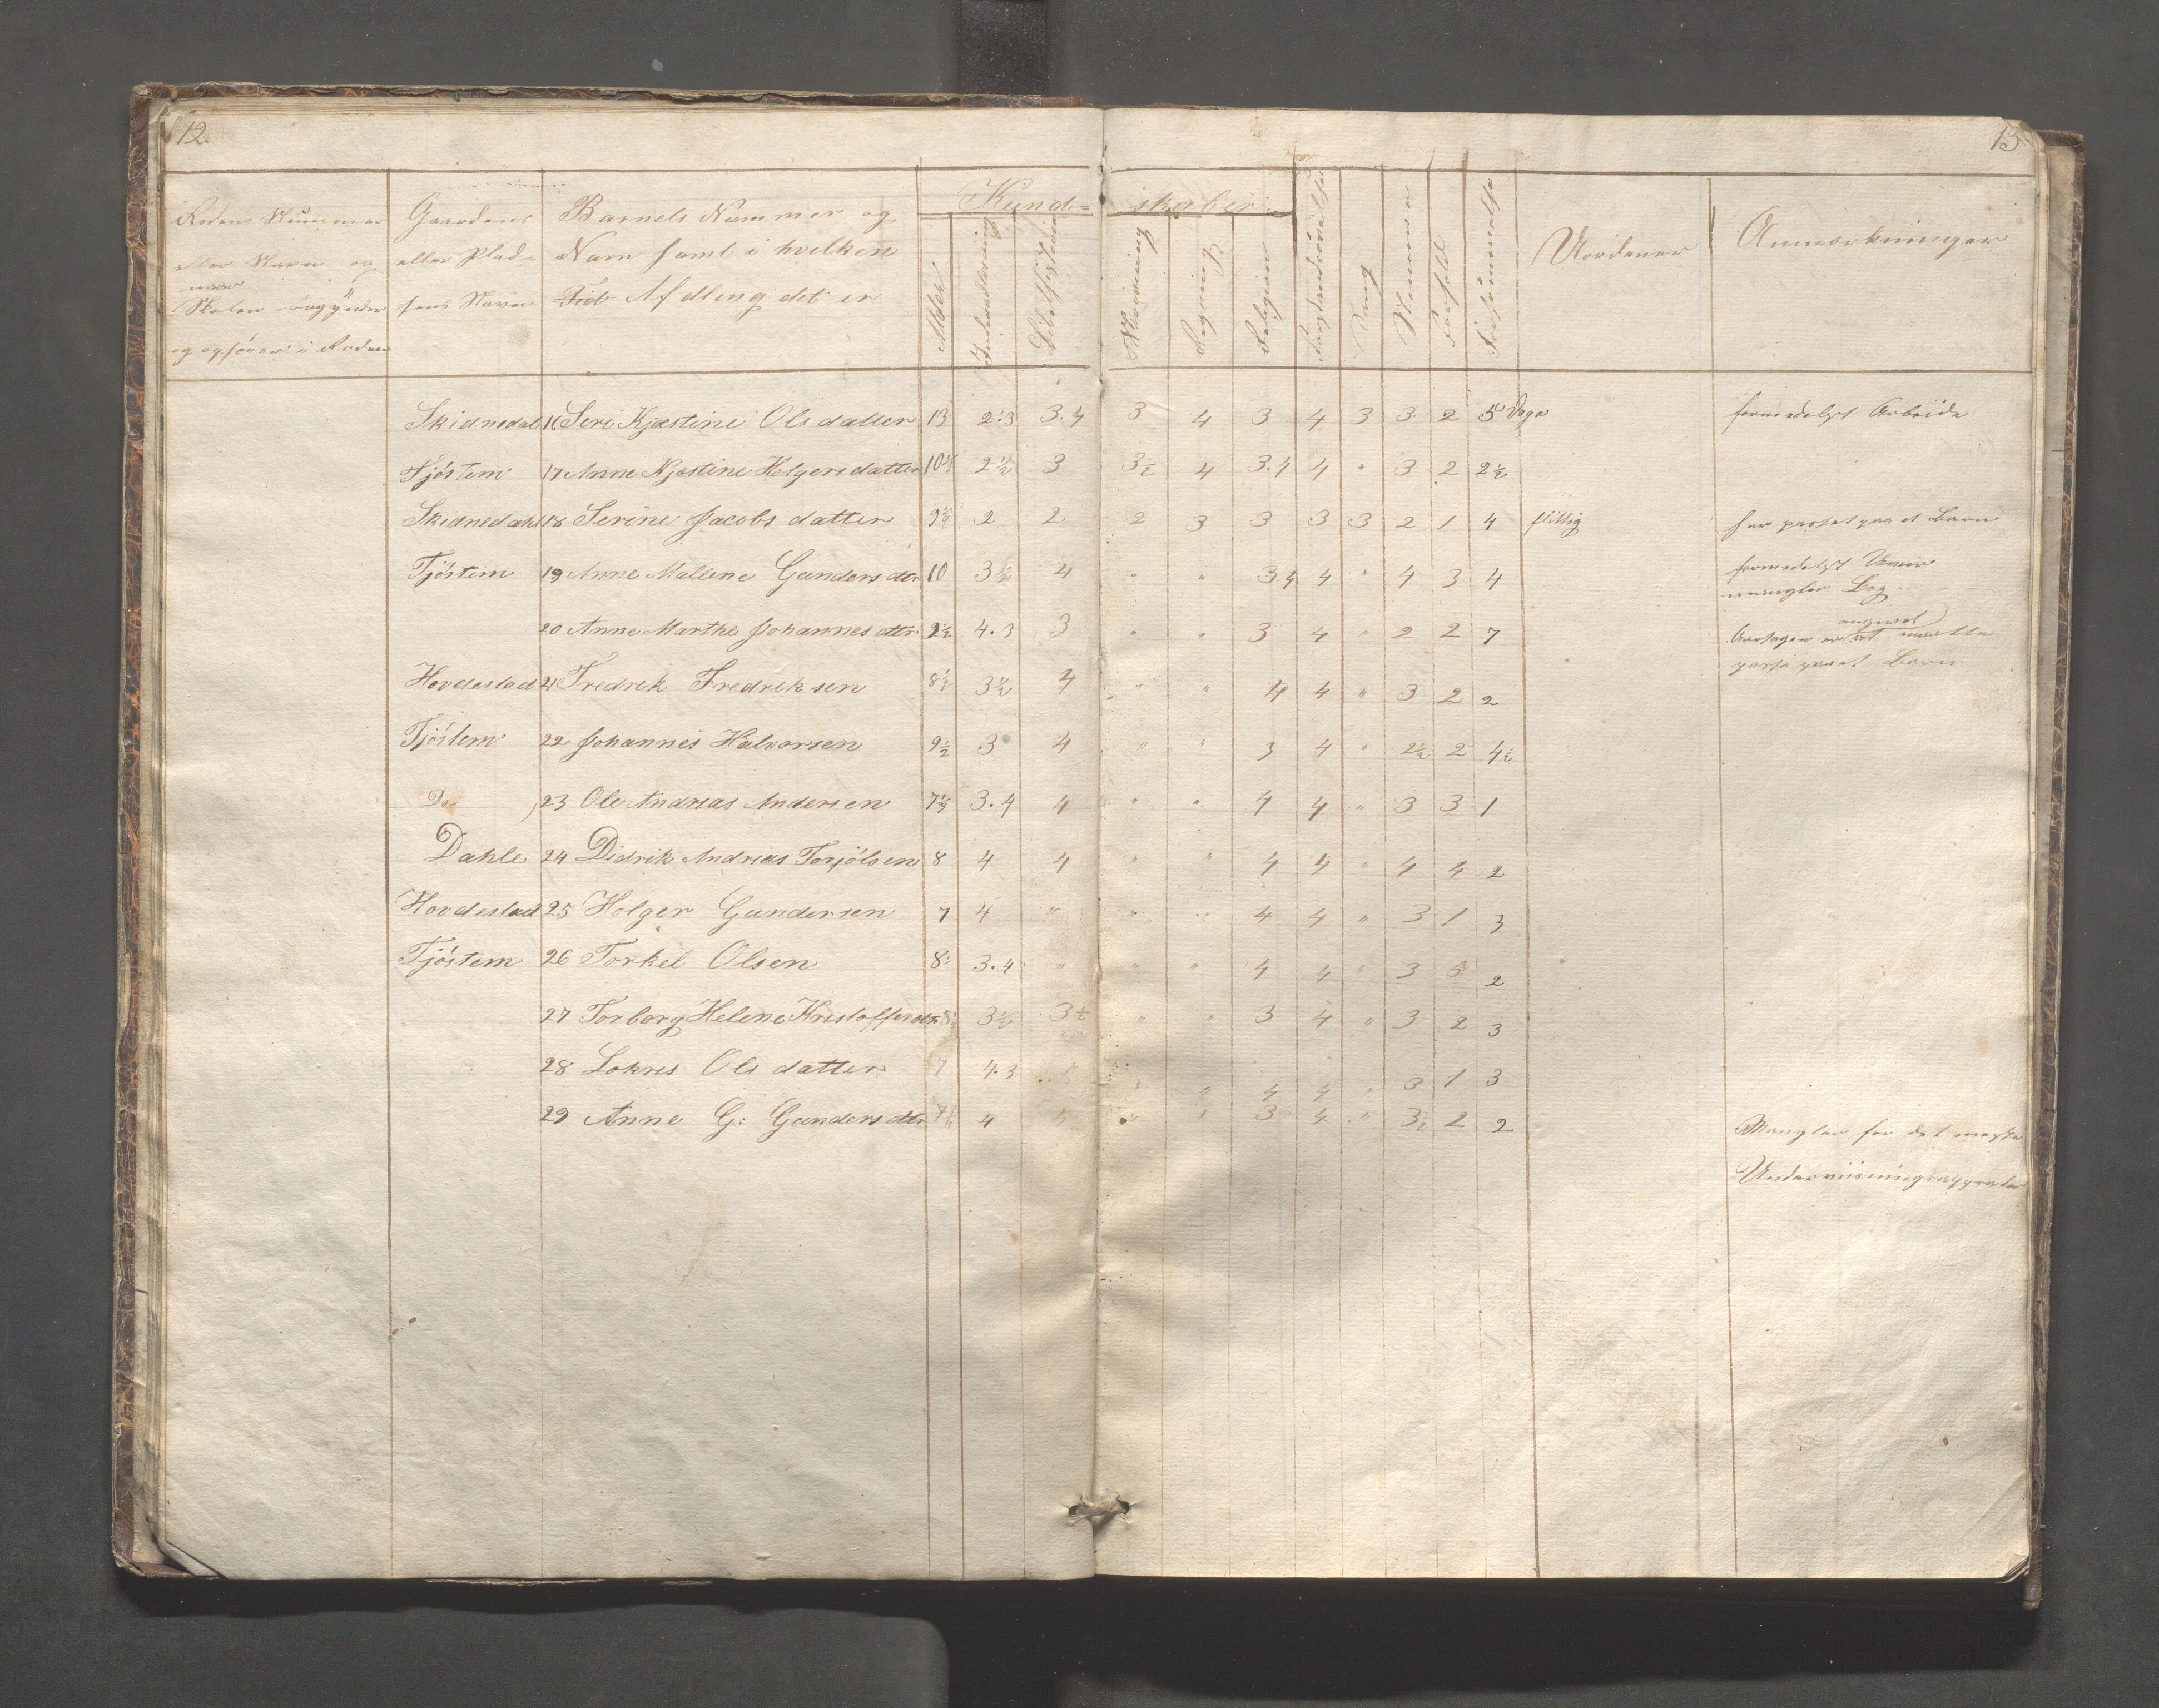 12
13
Rodens Nummer
eller Navn og
naar
Skolen begynder
og ophører i Roden
Gaardens
eller Plad-
sens Navn
Barnets Nummer og
Navn samt i hvilken
Afdling det er
Alder
Kund-
skaber
Skrivning
Regning
Religion
Sang
Nemme
Forhold
Forsømmelse
Anmærkninger
Skidnedal 16 Seri Kjæstine Olsdatter 13 2.3 3.4 3 4 3 4 3 3 2 5 Dage formedelst Arbeide
Tjöstem 17 Anne Kjæstine Holgersdatter 10½ 2½ 3 3½ 4 3.4 4 " 3 2 2½
Skednedahl 18 Serine Jacobsdatter 9¼ 2 2 2 3 3 3 3 2 1 4 flittig har passet paa et Barn
Tjöstem 19 Anne Malene Gundersdtr 10 3½ 4 " " 3.4 4 " 4 3 4 formedelst Uveir
mangler Bog
20 Anne Marthe Johannesdttr 9½ 4.3 3 " " 3 4 " 2 2 7 Aarsagen er at maatte
passe paa et Barn
Hovdestad 21 Fredrek Fredreksen 8½ 3½ 4 " " 4 4 " 3 2 2
Tjöstem 22 Johannes Halvorsen 9½ 3 4 " " 3 4 " 2½ 2 4½
Do 23 Ole Andreas Andersen 7½ 3.4 4 " " 4 4 " 3 3 1
Dahle 24 Didrik Andreas Torjölsen 8 4 4 " " 4 4 " 4 4 2
Hovdestad 25 Holger Gundersen 7 4 " " " 4 4 " 3 1 3
Tjöstem 26 Torkel Olsen 8 3.4 " " " 4 4 " 3 3 2
27 Torborg Helene Kristoffersdtr 8 3½ 3½ " " 3 4 " 3 2 3
28 Lokris Olsdatter 7 4.3 " " " 4 4 " 3 1 3
29 Anne G: Gundersdtr 7¼ 4 " " 3 4 " 3½ 2 2
Mangler for det meste
Underviisningsapparater